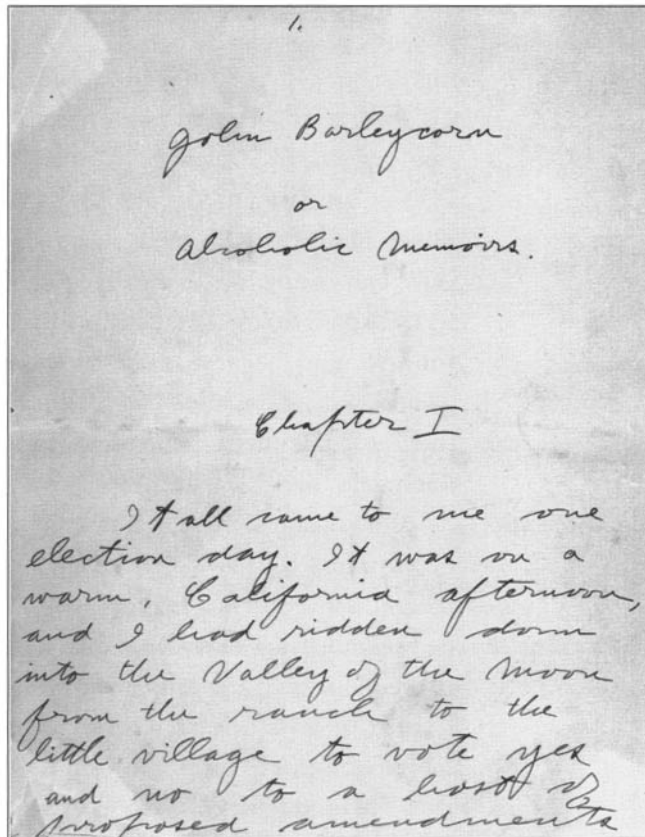 1.
John Barleycorn
or
Alcoholic Memoirs.
Chapter I
It all came to me one
election day. It was on a
warm, California afternoon,
and I had ridden down
into the Valley of the Moon
from the ranch to the
little village to vote yes
and no to a host of
proposed amendments